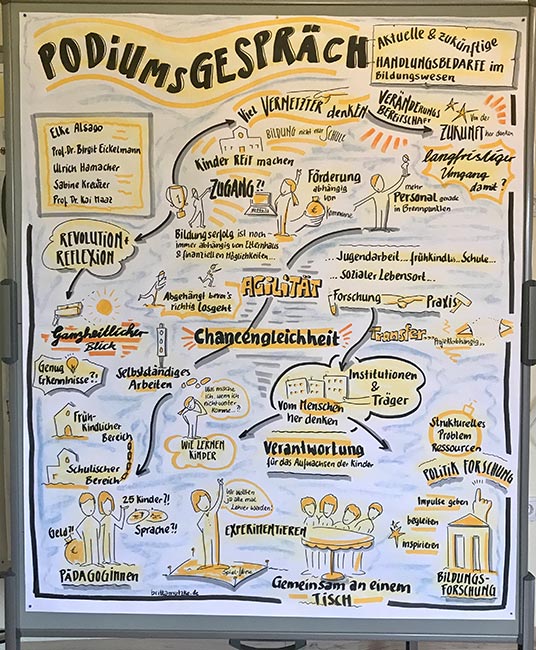 PODiUMsGESPRÄCH
Aktuelle & zukünftige
HANDLUNGSBEDARFE im
Bildungswesen
Elke Alsago
Prof. Dr. Birgit Eickelmann
Ulrich Hamacher
Sabine Kreutzer
Prof. Dr. Kai Maaz
Viel VERNETZTER denken
BILDUNG nicht nur SCHULE
Kinder REIF machen
VERÄNDERUNGS
BEREITSCHAFT
Von der
ZUKUNFT her denken
langfristiger
Umgang
damit?
ZUGANG?!
Förderung
abhängig
von
Kommune
mehr
Personal gerade
in Brennpunkten
Bildungserfolg ist noch
immer abhängig von Elternhaus
& finanziellen Möglichkeiten...
REVOLUTION +
REFLEXION
...Jugendarbeit...frühkindl...Schule...
...sozialer Lebensort...
Forschung
Praxis
AGILITÄT
Abgehängt bevor's
richtig losgeht
Ganzheitlicher
Blick
Chancengleichheit
Transfer...
Projektabhängig...
Genug
Erkenntnisse?!
Selbstständiges
Arbeiten
Was mache
ich, wenn ich
nicht weiter
komme...?
Institutionen
&
Träger
Vom Menschen
her denken
Früh-
kindlicher
Bereich
Schulischer
Bereich
WIE LERNEN
KINDER
Verantwortung
für das Aufwachsen der Kinder
Strukturelles
Problem
Ressourcen
POLITIK FORSCHUNG
25 Kinder?!
Geld?!
Sprache?!
PÄDAGOGINNEN
Wir wollten
ja alle mal
Lehrer werden!
EXPERIMENTIEREN
Gemeinsam an einem
TISCH
Impulse geben
begleiten
inspirieren
BILDUNGS-
FORSCHUNG